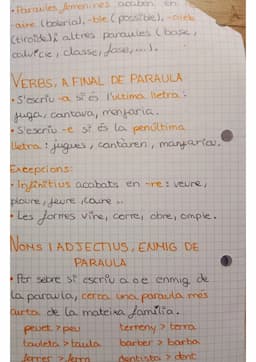 • Paraules femenines acaben en
-aire (boleria), -ble (possible), -oide
(tiroide) i altres paraules (base,
calvície, classe, fase, ...).
VERBS, A FINAL DE PARAULA
• S'escriu -a si és l'última lletra:
juga, cantava, menjaria.
• S'escriu -e si és la penúltima
lletra: jugues, cantaren, menjaries.
Excepcions:
• Infinitius acabats en -re: veure,
ploure, jeure, laure...
• Les formes vine, corre, obre, omple.
NOMS I ADJECTIUS, ENMIG DE
PARAULA
• Per sebre si escriu a o e enmig de
la paraula, cerca una paraula més
curta de la mateixa família.
peuet > peu terreny > terra
tauleta > taula barber > barba
ferrer > ferro dentista > dent